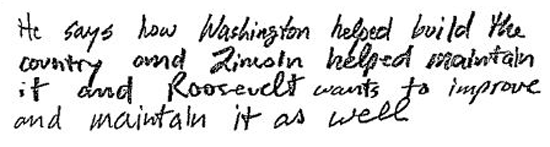 He says how Washington helped build the
country and Lincoln helped maintain
it and Roosevelt wants to improve
and maintain it as well